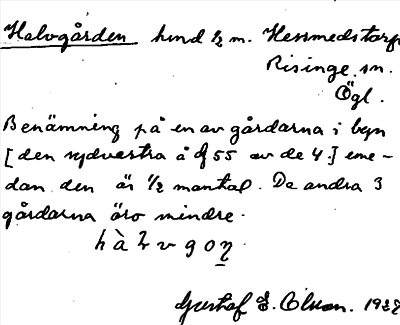 Halvgården hmd ½ m. Hessmedstorp
Risinge sn.
Ögl.
Benämning på en av gårdarna i byn
[den sydvestra å 55 av de 4.] eme-
dan den är ½ mantal. De andra 3
gårdarna äro mindre.
Gustaf E. Olsson.